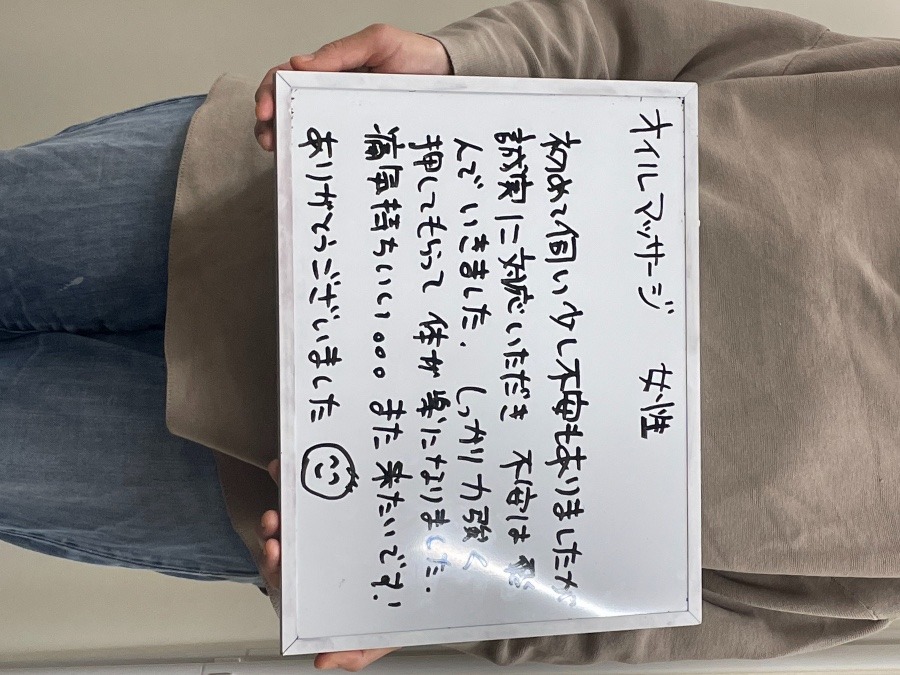 オイルマッサージ 女性
初めて伺い少し不安もありましたが
誠実に対応いただき 不安は飛
んでいきました. しっかり力強く
押してもらって 体が楽になりました.
痛気持ちいい。。。 また来たいです!
ありがとうございました